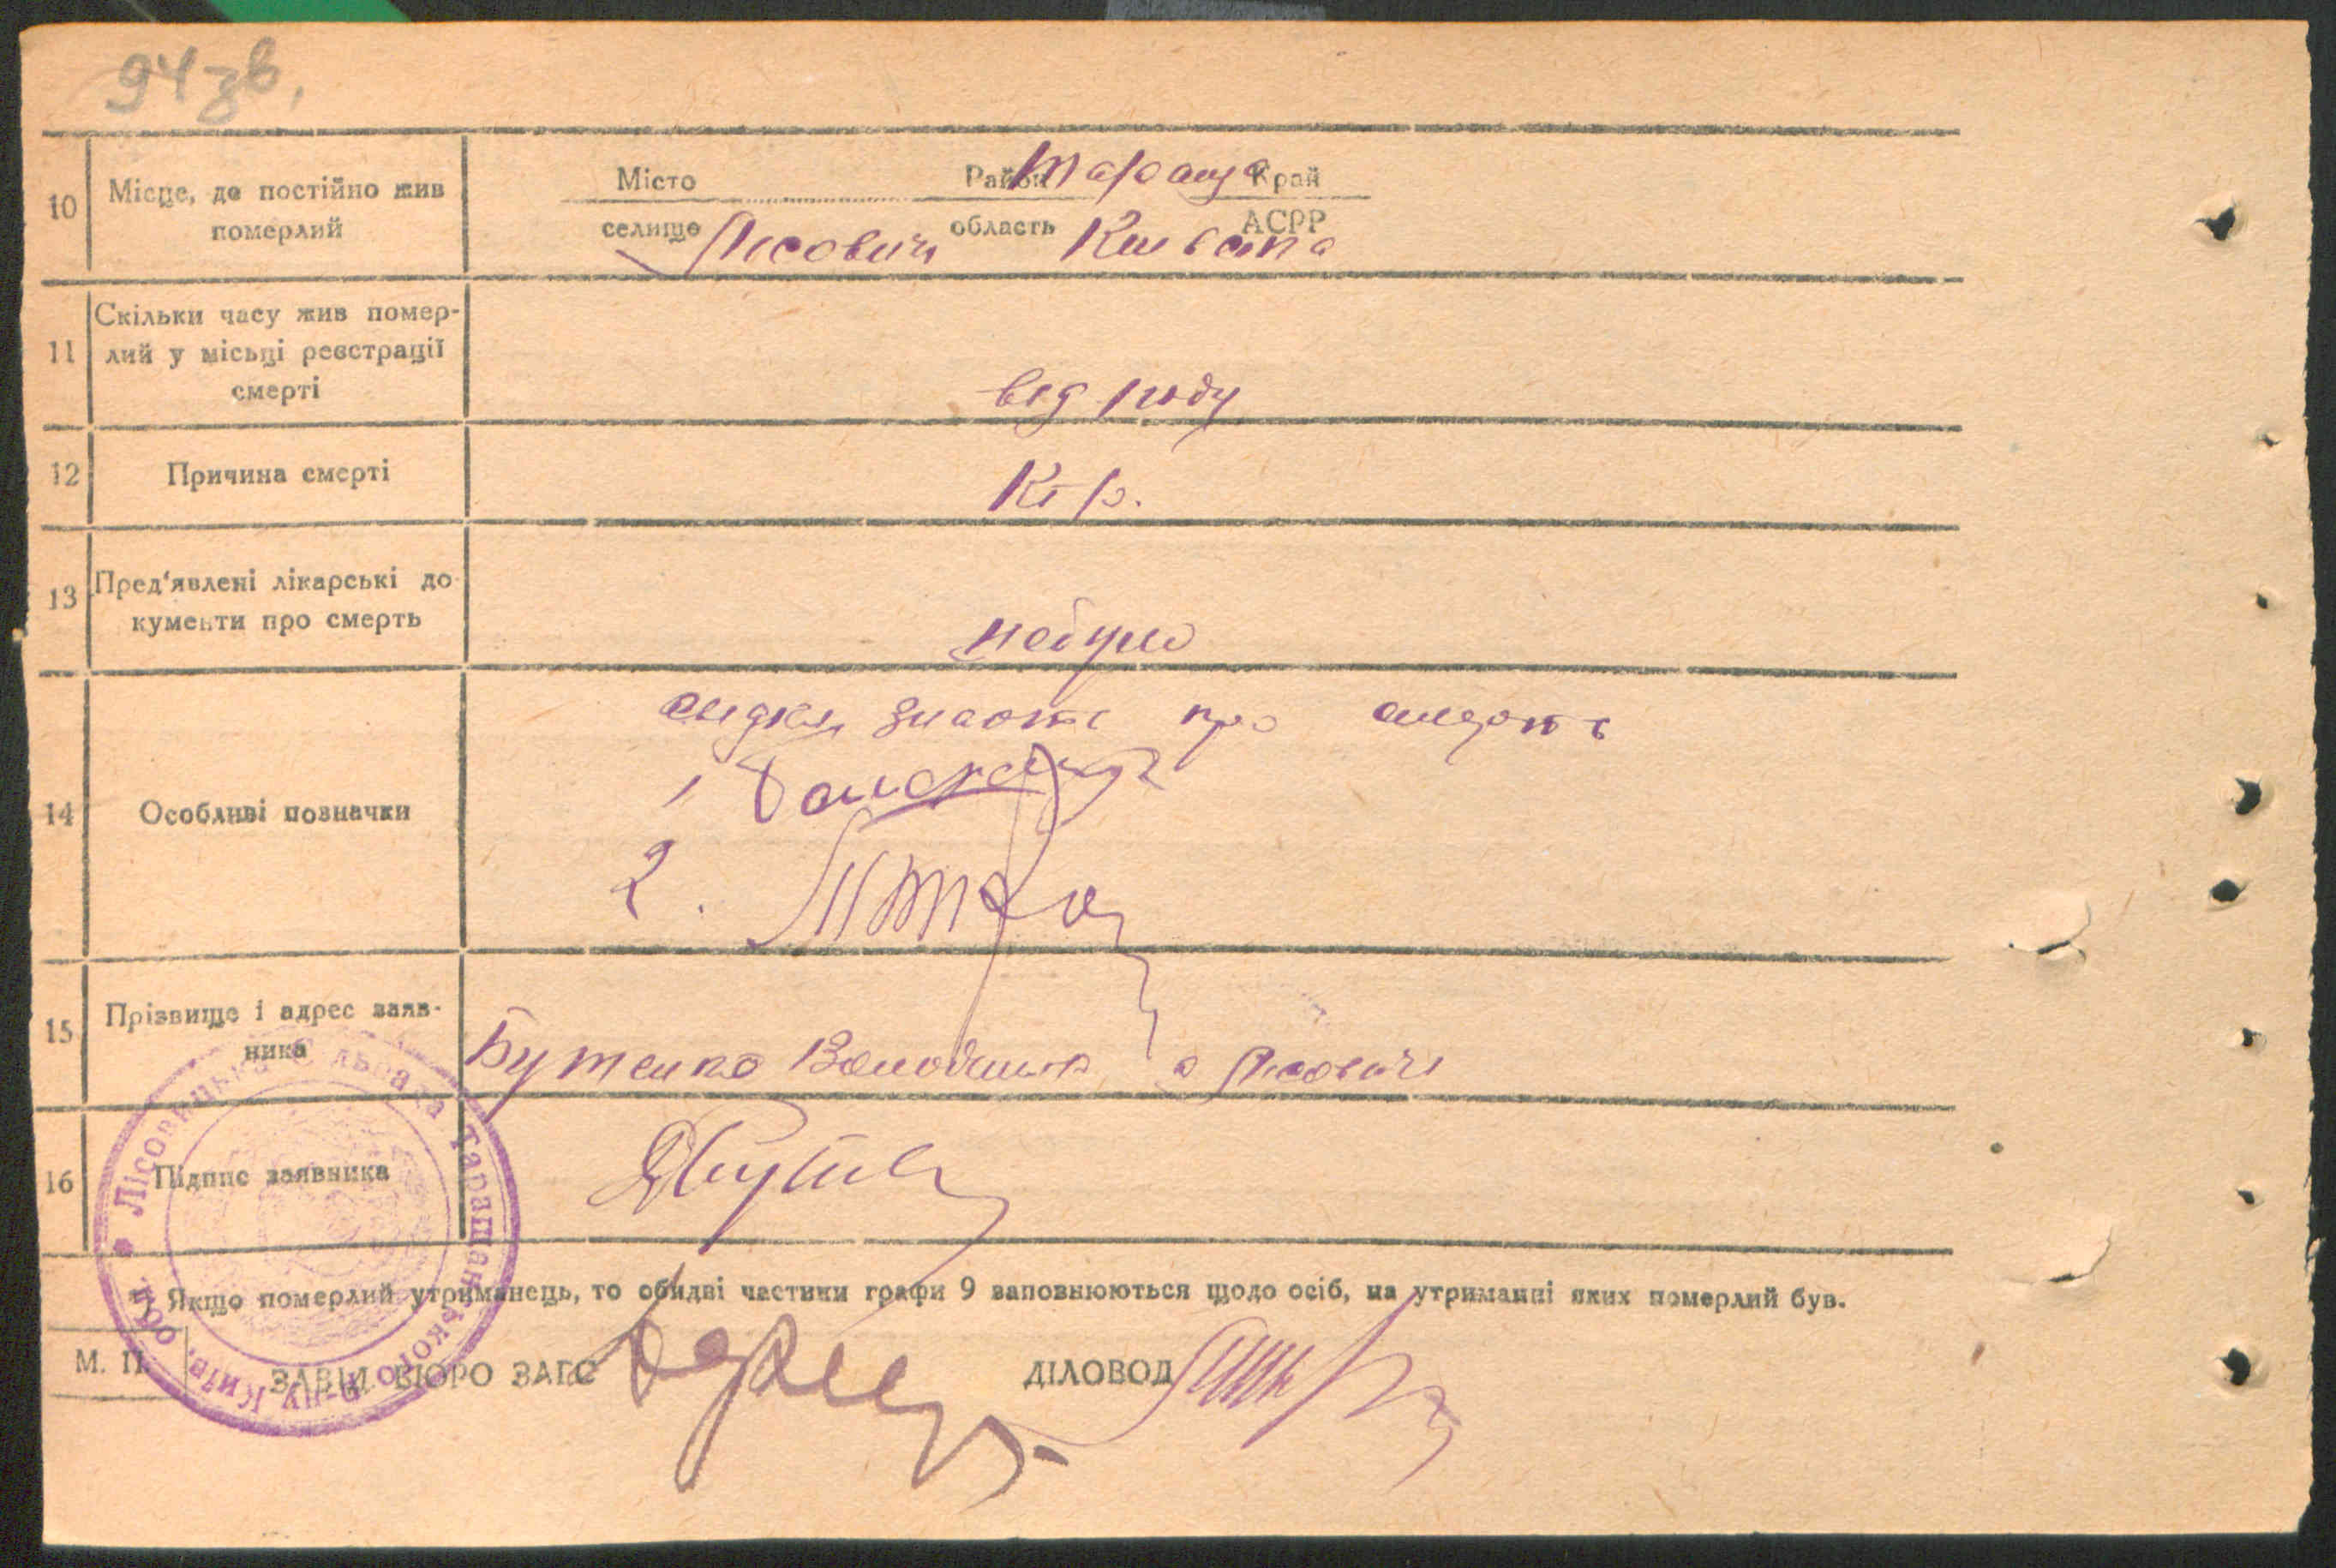 94 зв.
10 Місце, де постійно жив померлий
Місто Район Тараща Край
селище Лісовичі область Київська АСРР
11 Скільки часу жив помер-
лий у місьці реєстрації
смерті
від роду
12 Причина смерті
13 Пред'явлені лікарські до
кументи про смерть
небуло
14 Особливі позначки
про
1
2.
15 Прізвище і адрес заяв-
ника
Бутенко с Лісовичі
16 Підпис заявника
*) Якщо померлий утриманець, то обидві частини графи 9 заповнюються щодо осіб, на утриманні яких померлий був.
М. П.
ЗАВІД. БЮРО ЗАГС ДІЛОВОД
Лісовицька Сільрада Таращанського р-ну Київ. обл.